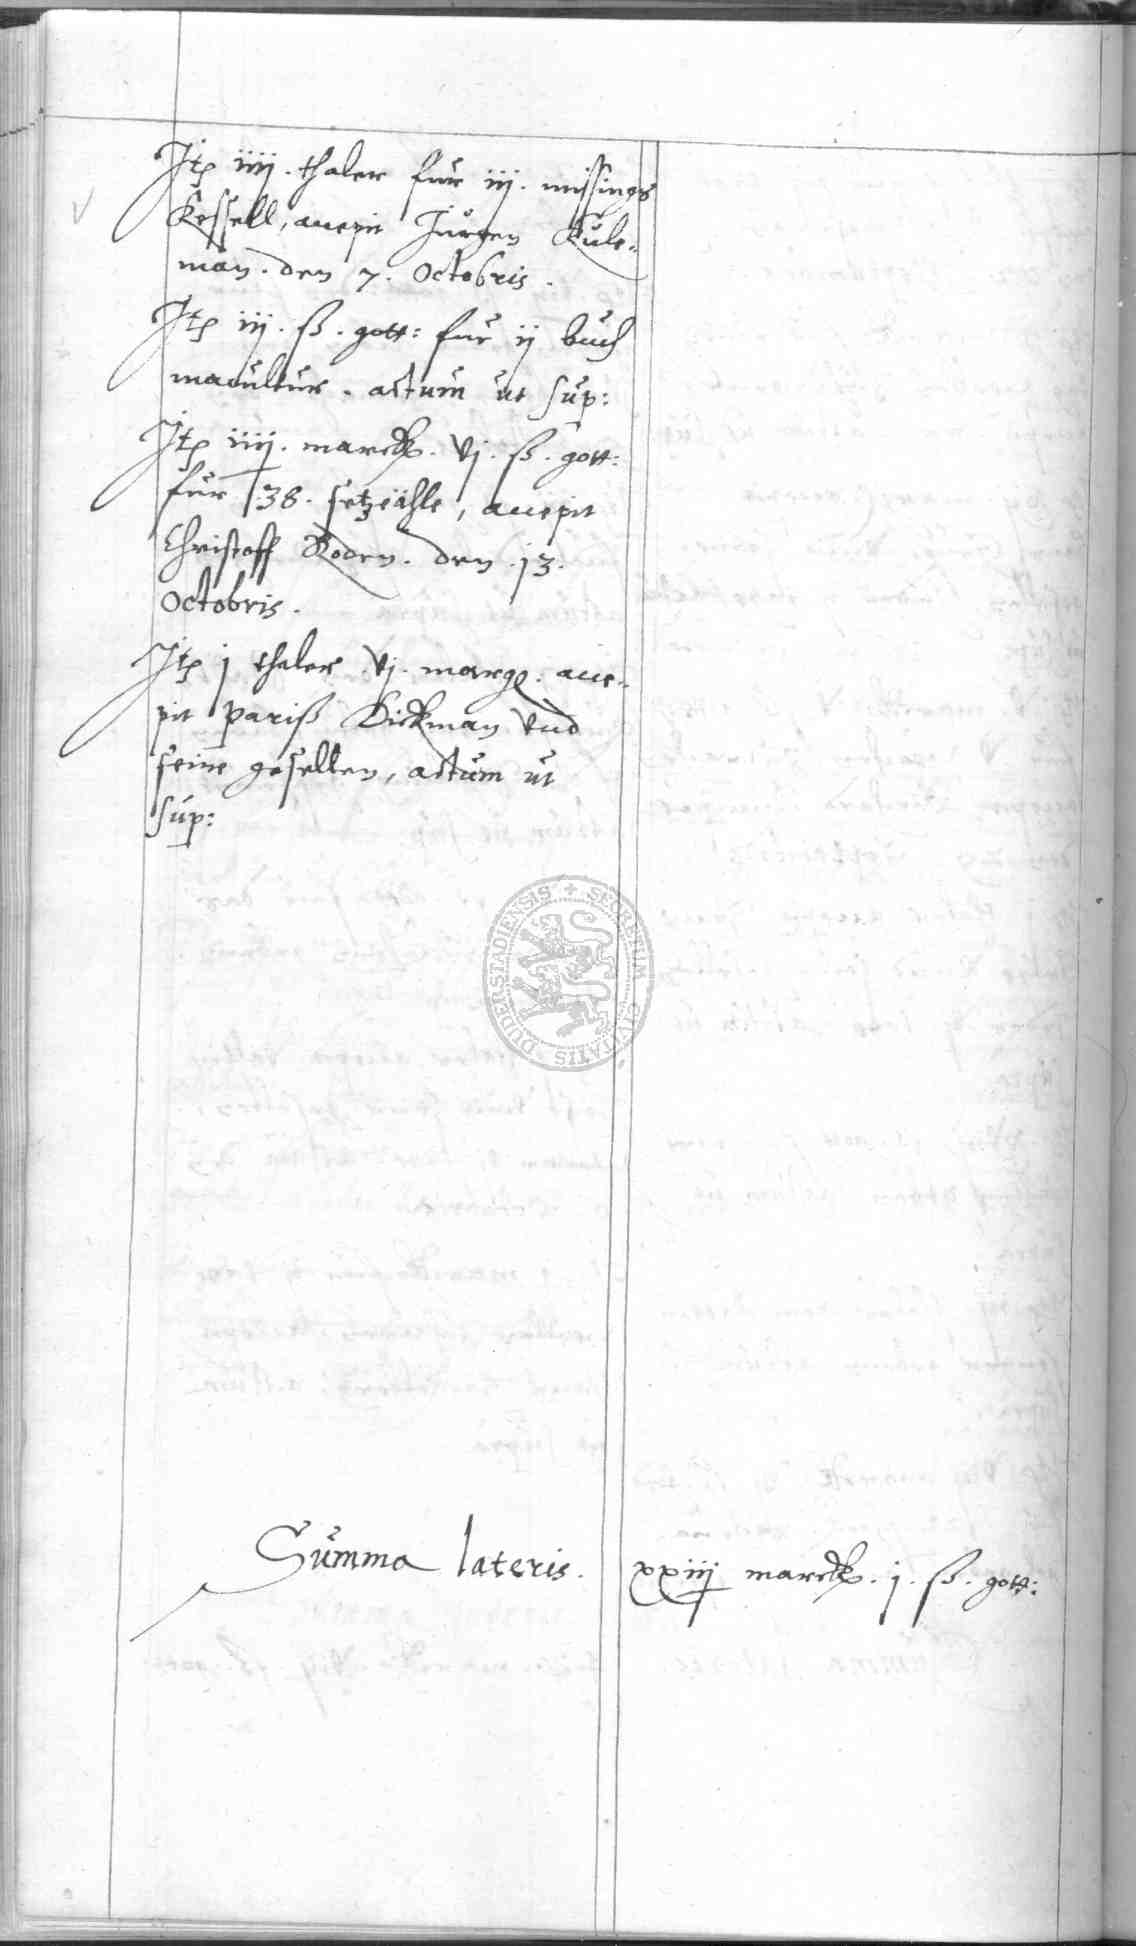 Jtꝑ iiij. thaler fur iij. missings
Kessell, accepit Jurgen Kule-
man. den 7. Octobris.
Jtꝑ iij. ß. gott: fur ij buch
maculatur. actum ut sup:
Jtꝑ iiij. marck. vj. ß. gott:
fur 38. setzeähle, accepit
Christoff Koden. den .13.
Octobris.
Jtꝑ j thaler vj. marg. acce-
pit Pariß Dickman vnd
seine gesellen, actum ut
sup:
SECRETUM CIVITATIS DUDERSTADIENSIS
Summa lateris. xxiiij marck. j. ß. gott: